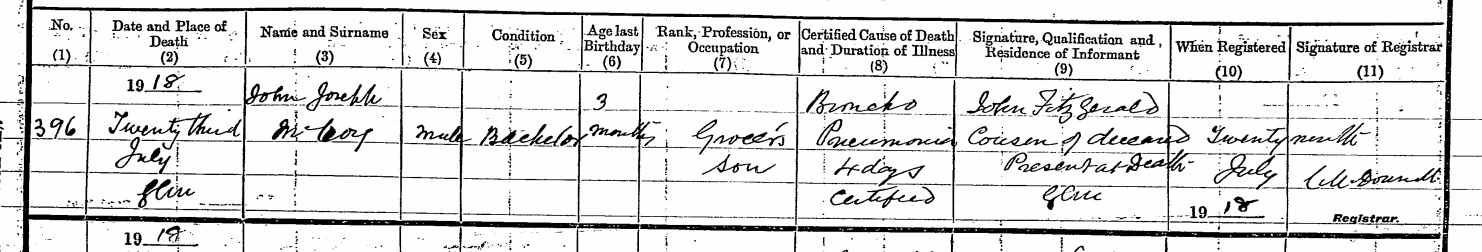 No. Date and Place of Death Name and Surname Sex Condition Age last Birthday Rank, Profession, or Occupation Certified Cause of Death and Duration of Illness Signature, Qualification and Residence of Informant When Registered Signature of Registrar
(1) (2) (3) (4) (5) (6) (7) (8) (9) (10) (11)
1918 John Joseph 3 Broncho John FitzGerald
396 Twenty third McCoy Male Bachelor months Grocer's Pneumonia Cousen of deceased Twenty ninth
July son 4 days Present at Death July
Glin Certified Glin 1918 Registrar.
1918